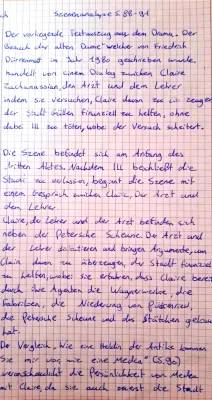 Szenenanalyse S. 88-91
Der vorliegende Textauszug aus dem Drama „Der
Besuch der alten Dame" welcher von Friedrich
Dürrenmatt im Jahr 1980 geschrieben wurde,
handelt von einem Dialog zwischen Claire
Zachanassian, der Arzt und dem Lehrer
indem sie versuchen, Claire davon zu
der Stadt Güllen finanziell zu helfen, ohne
dabei Ill zu töten, wobei der Versuch scheitert.
Die Szene befindet sich am Anfang des
dritten Aktes. Nachdem Ill beschließt die
Stadt zu verlassen, beginnt die Szene mit
einem Gespräch zwischen Claire, Der Arzt und
den Lehrer.
Claire, der Lehrer und der Arzt befinden sich
neben der Petersche Scheune. Der Arzt und
der Lehrer diskutieren und bringen Argumente, um
Claire davon zu überzeugen, der Stadt finanziell
zu helfen, wobei sie erfahren, dass Claire bereits
durch ihre Agenten die Wagnerwerke die
Fabriken, die Niederung von Pückenried,
die Petersche Scheune und das Städtchen
hat.
Der Vergleich, wie eine Heldin der Antike kommen
Sie mir vor, wie eine Medea" (S. 90)
veranschaulicht die Persönlichkeit von Medea
mit Claire, da sie auch die Stadt